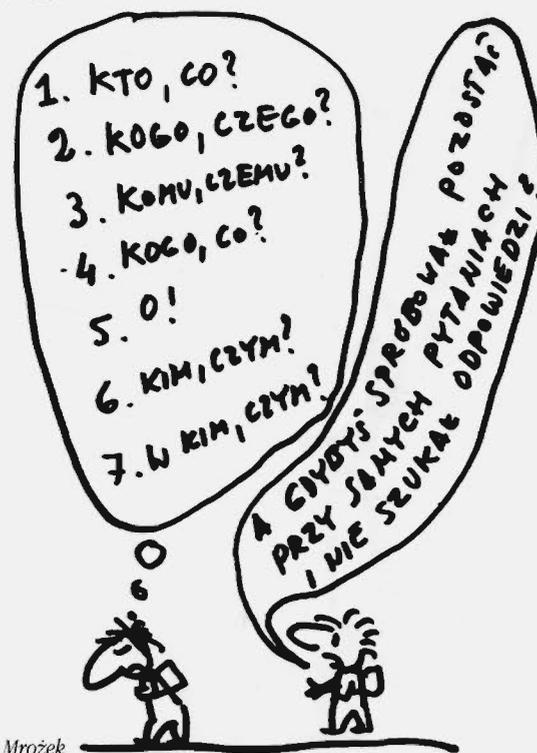 1. KTO, CO?
2. KOGO, CZEGO?
3. KOMU, CZEMU?
4. KOGO, CO?
5. O!
6. KIM, CZYM?
7. W KIM, CZYM?
A GDYBYŚ SPRÓBOWAŁ POZOSTAĆ
PRZY SAMYCH PYTANIACH
I NIE SZUKAŁ ODPOWIEDZI?
Mrożek